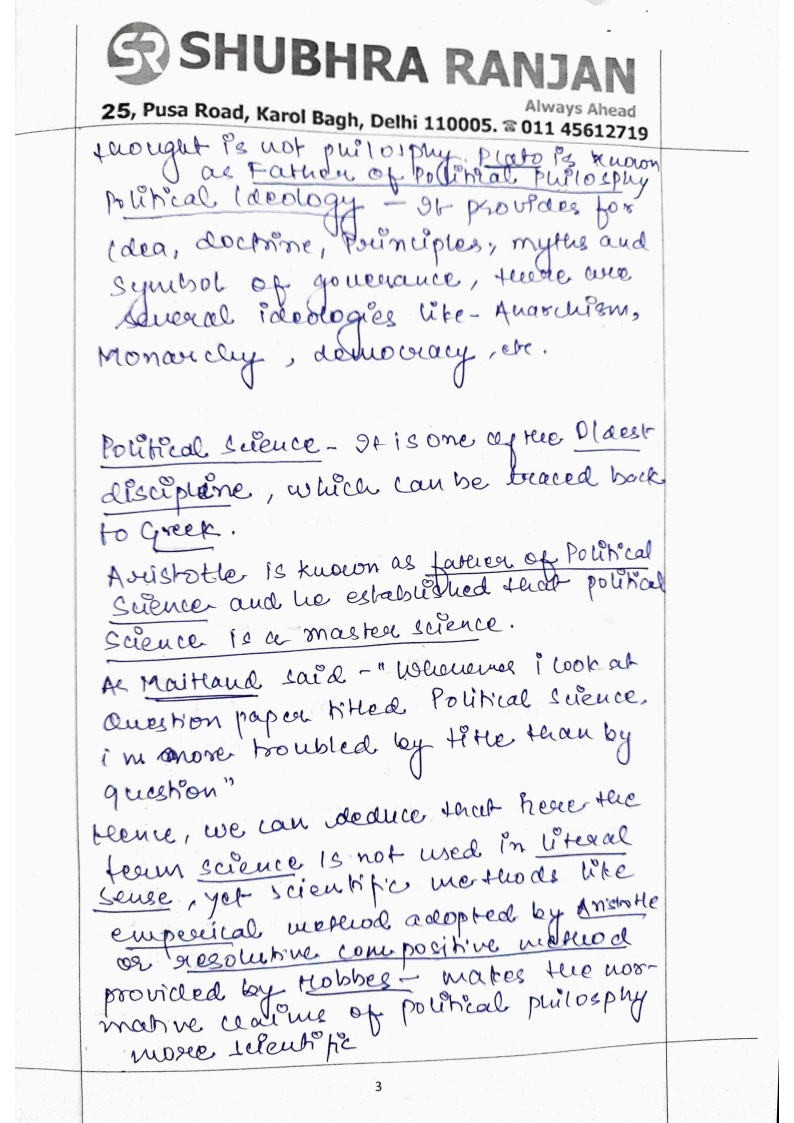 SR SHUBHRA RANJAN
Always Ahead
25, Pusa Road, Karol Bagh, Delhi 110005. ☎ 011 45612719
thought is not philosphy. Plato is known
as Father of Political Philosphy
Political Ideology - It provides for
idea, doctrine, Principles, myths and
Symbol of govenance, there are
several ideologies like - Anarchism,
Monarchy, democracy, etc.
Political Science - It is one of the Oldest
discipline, which can be traced back
to Greek.
Aristotle is known as father of Political
Science and he established that political
Science is a master science.
As Maitland said - "Whenever i look at
Question paper titled Political Science,
i m more troubled by title than by
question"
Hence, we can deduce that here the
term science is not used in literal
sense, yet scientific methods like
emperical method adopted by Aristotle
or resolutive compositive method
provided by Hobbes - makes the nor-
mative claims of political philosphy
more scientific
3